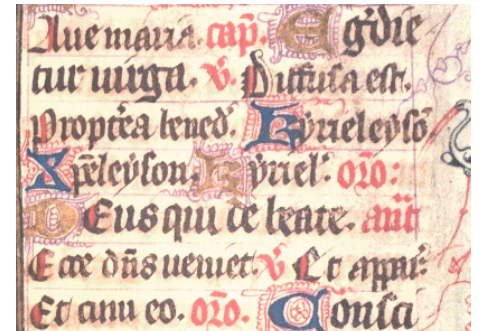 Aue maria. cap̄. Egr̄die
tur uirga. v̄. Diffusa est.
Propt̄ea bened̄. Kyrieleysō
Xp̄eleyson. Kyriel̄. or̄o:
DEus qui de beate. ant̄
Ecce dn̄s ueniet. v̄ Et appar̄:
Et cum eo. or̄o. Consci